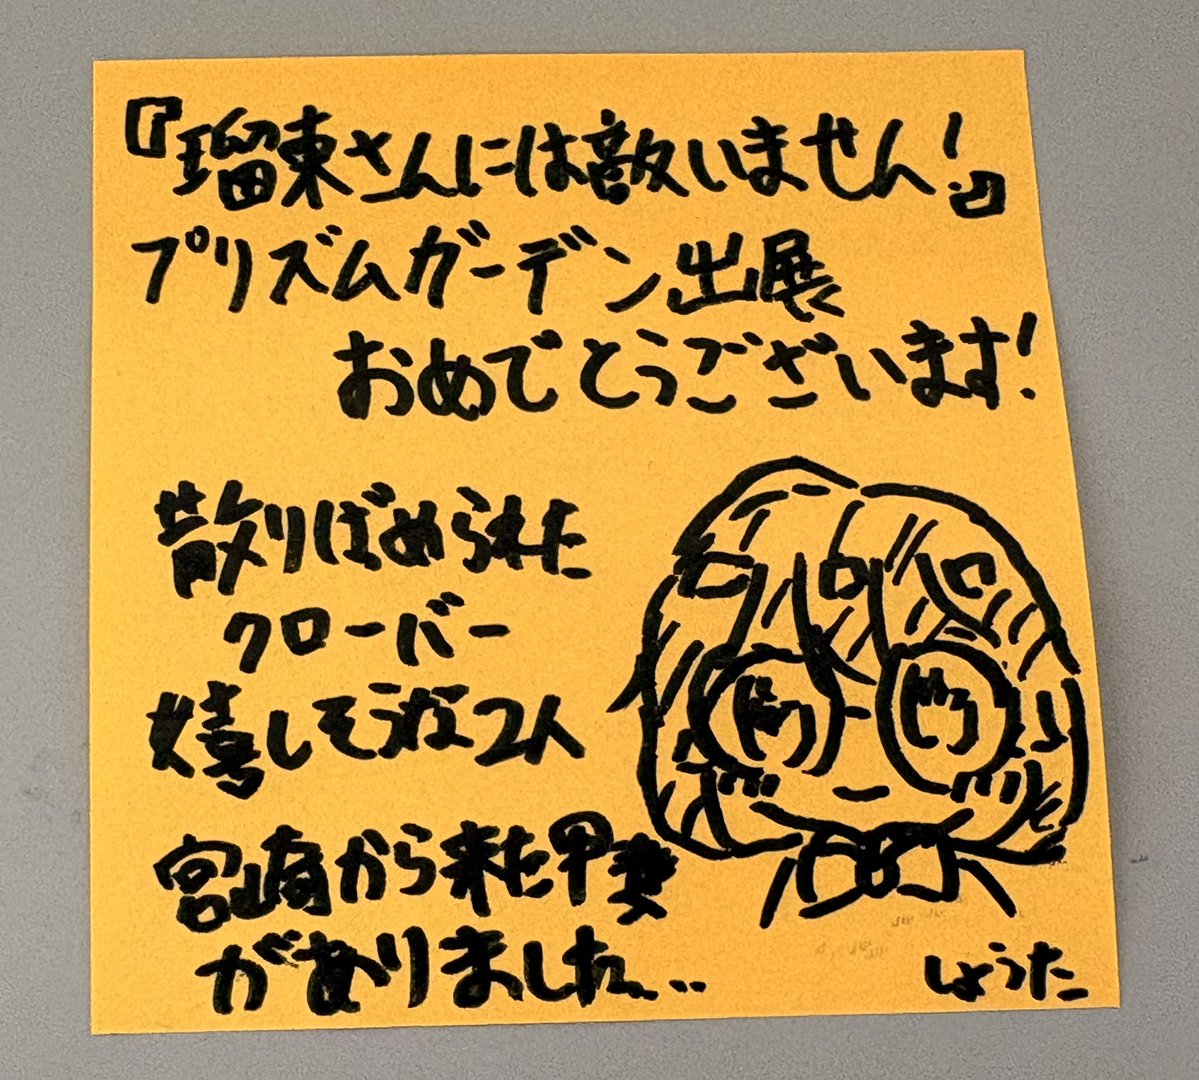 『瑠東さんには敵いません!』
プリズムガーデン出展
おめでとうございます!
散りばめられた
クローバー
嬉しそうな2人
宮崎から来た甲斐
がありました...
しょうた